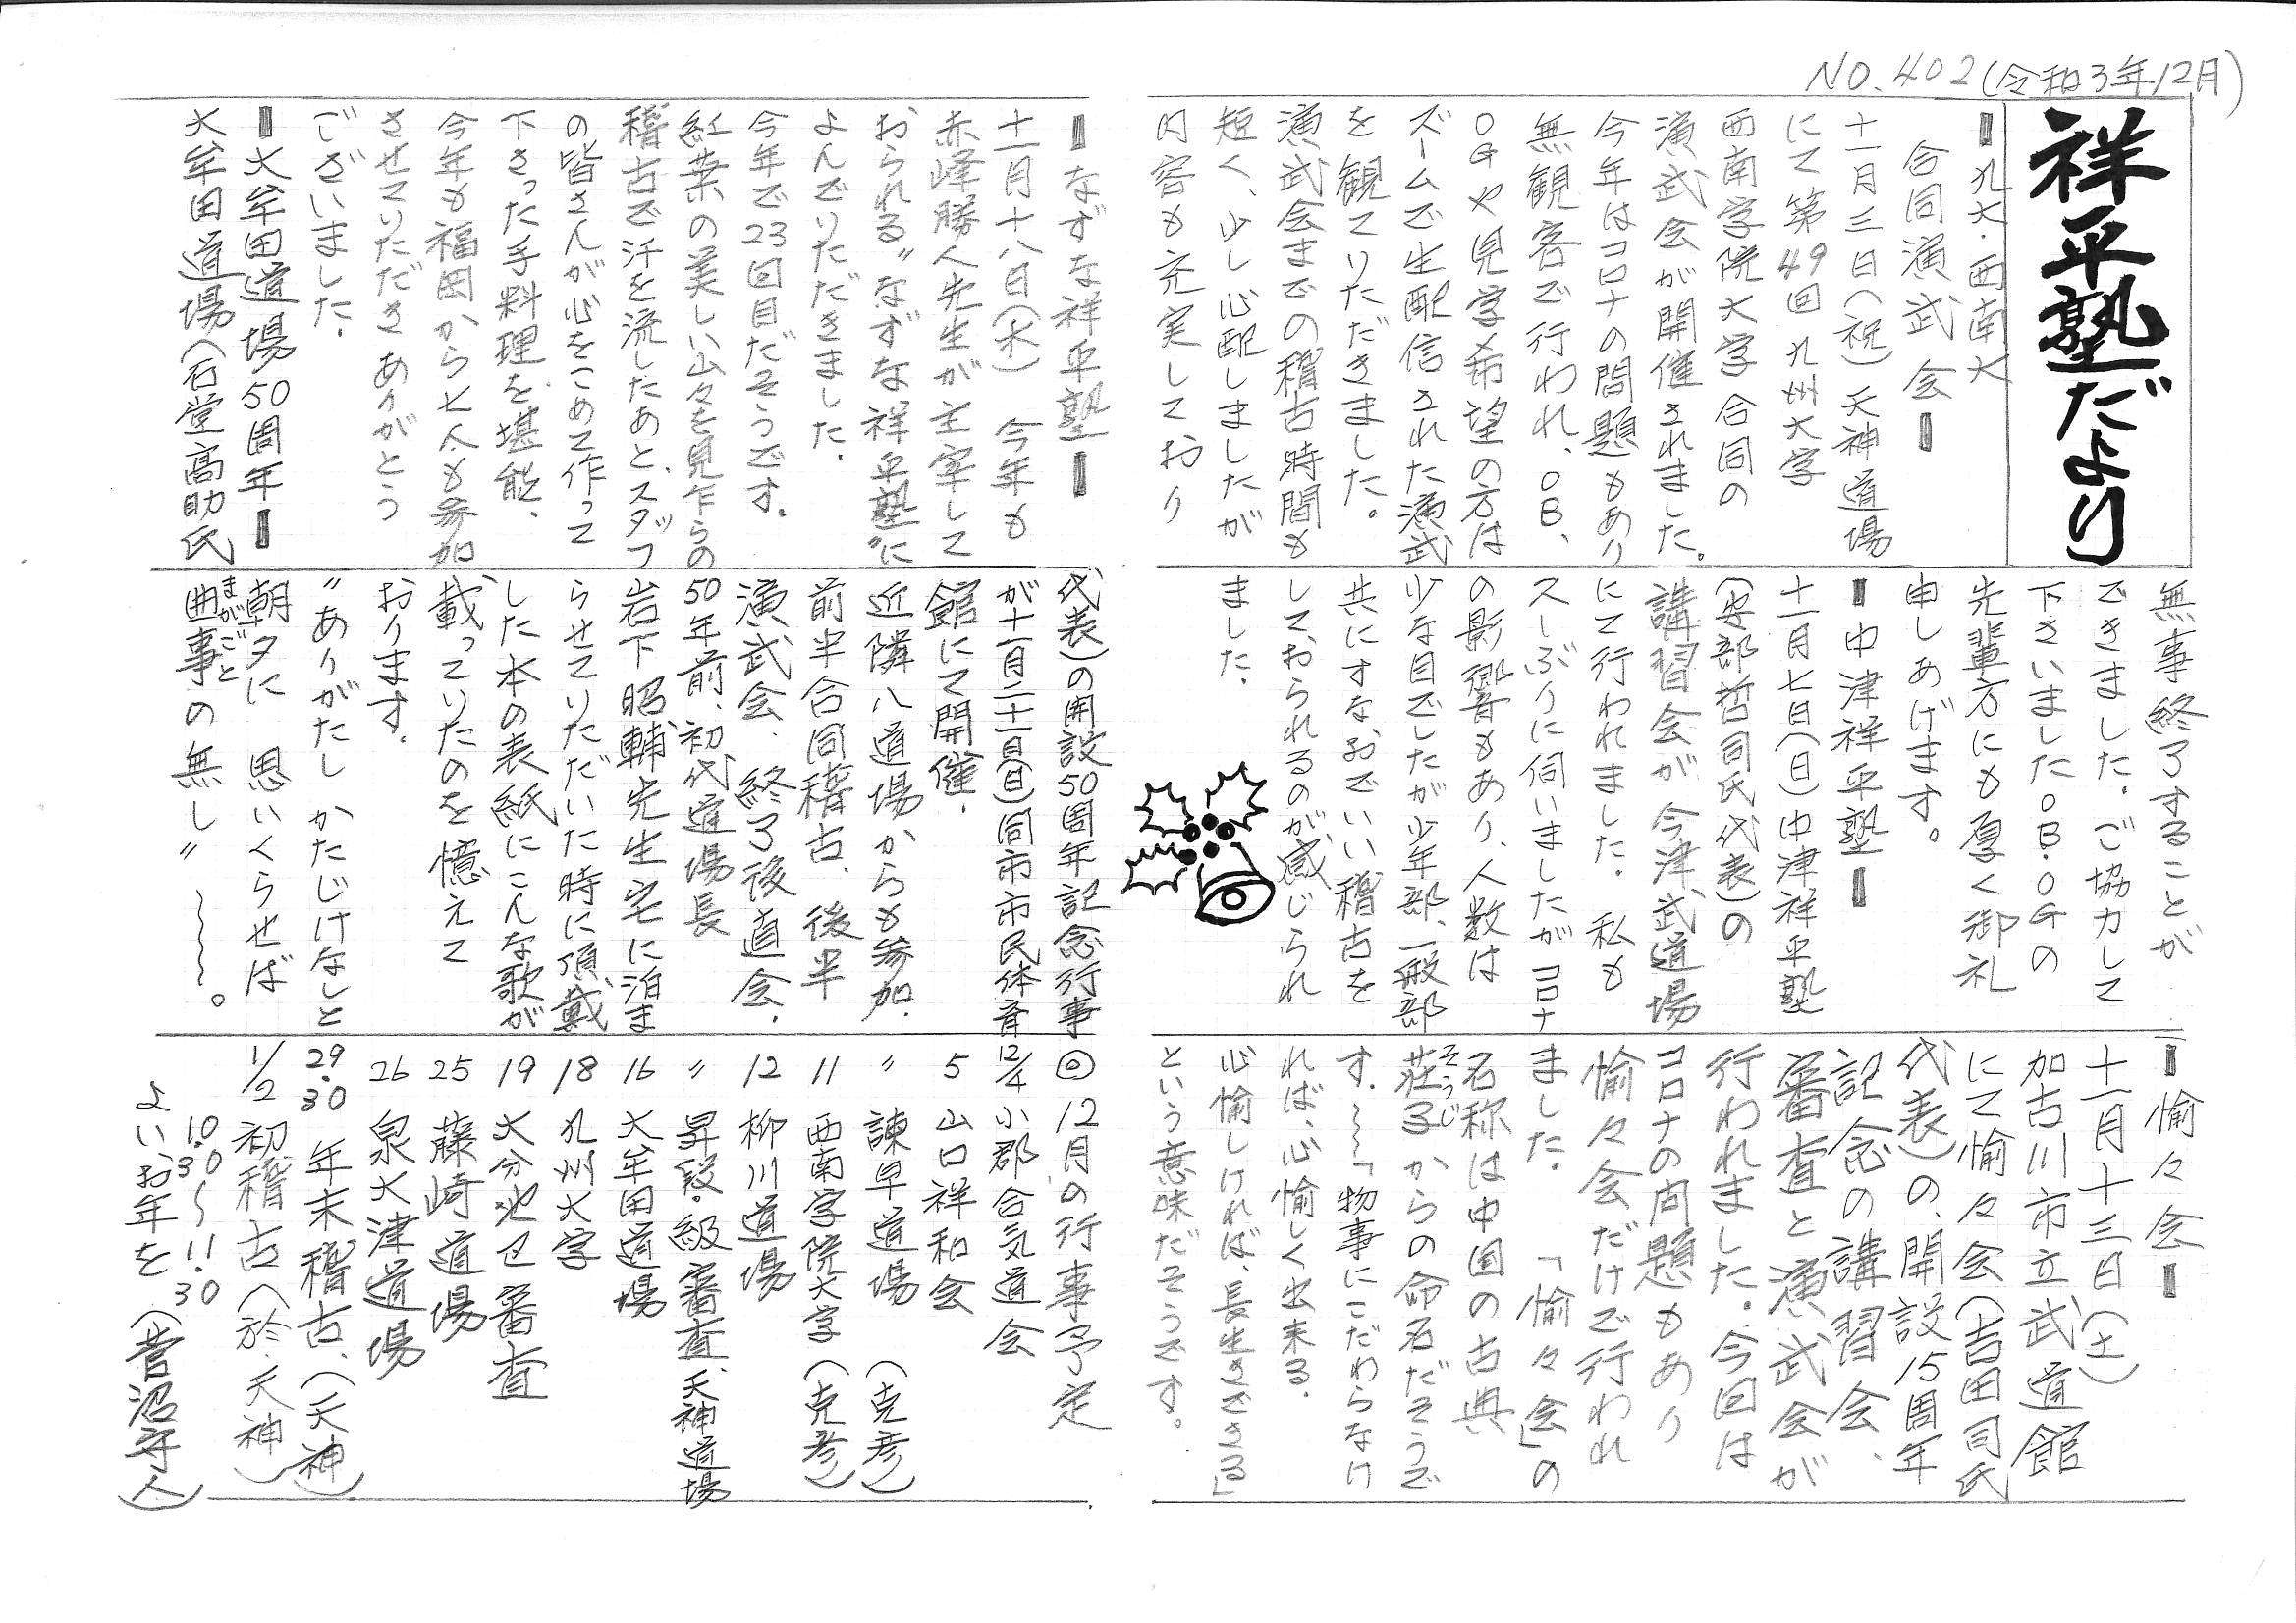 NO.402(令和3年12月)
祥平塾だより
━九大・西南大
合同演武会━
十一月三日(祝)天神道場
にて第49回 九州大学
西南学院大学合同の
演武会が開催されました。
今年はコロナの問題もあり
無観客で行われ、OB、
OGや見学希望の方は
ズームで生配信された演武
を観ていただきました。
演武会までの稽古時間も
短く、少し心配しましたが
内容も充実しており
無事終了することが
できました。ご協力して
下さいましたOB・OGの
先輩方にも厚く御礼
申しあげます。
━中津祥平塾━
十一月七日(日)中津祥平塾
(安部哲司氏代表)の
講習会が今津武道場
にて行われました。私も
久しぶりに伺いましたがコロナ
の影響もあり、人数は
少な目でしたが少年部、一般部
共にすなおでいい稽古を
しておられるのが感じられ
ました。
━愉々会━
十一月十三日(土)
加古川市立武道館
にて愉々会(吉田司氏
代表)の、開設15周年
記念の講習会、
審査と演武会が
行われました。今回は
コロナの問題もあり
愉々会だけで行われ
ました。「愉々会」の
名称は中国の古典
荘子(そうじ)からの命名だそうで
す。〜〜「物事にこだわらなけ
れば、心愉しく出来る。
心愉しければ、長生きできる」
という意味だそうです。
━なずな祥平塾━
十一月十八日(木) 今年も
赤峰勝人先生が主宰して
おられる〝なずな祥平塾〟に
よんでいただきました。
今年で23回目だそうです。
紅葉の美しい山々を見乍らの
稽古で汗を流したあと、スタッフ
の皆さんが心をこめて作って
下さった手料理を堪能、
今年も福岡から七人も参加
させていただきありがとう
ございました。
━大牟田道場50周年━
大牟田道場(石堂高助氏
代表)の開設50周年記念行事
が十一月二十一日(日)同市市民体育
館にて開催。
近隣八道場からも参加。
前半合同稽古、後半
演武会、終了後直会。
50年前、初代道場長
岩下昭輔先生宅に泊ま
らせていただいた時に頂戴
した本の表紙にこんな歌が
載っていたのを憶えて
おります。
〝ありがたし かたじけなしと
朝夕に 思いくらせば
曲事(まがごと)の無し〟 〜〜〜。
◎12月の行事予定
12/4 小郡合気道会
5 山口祥和会
〃 諫早道場(克彦)
11 西南学院大学(克彦)
12 柳川道場
〃 昇段・級審査、天神道場
16 大牟田道場
18 九州大学
19 大分地区審査
25 藤崎道場
26 泉大津道場
29・30 年末稽古、(天神)
1/2 初稽古(於・天神)
10:30〜11:30
よいお年を(菅沼守人)